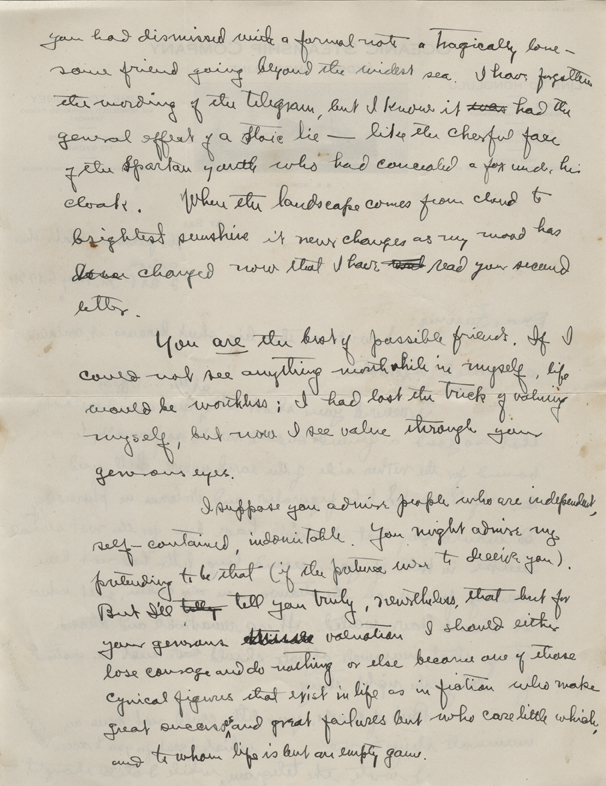 you had dismissed with a formal note a tragically lone-
some friend going beyond the widest sea. I have forgotten
the wording of the telegram, but I know it was had the
general effect of a stoic lie — like the cheerful face
of the Spartan youth who had concealed a fox under his
cloak. When the landscape comes from cloud to
brightest sunshine it never changes as my mood has
changed now that I have read your second
letter.
You are the best of possible friends. If I
could not see anything worthwhile in myself, life
would be worthless; I had lost the trick of valuing
myself, but now I see value through your
generous eyes.
I suppose you admire people who are independent,
self-contained, indomitable. You might admire my
pretending to be that (if the pretence were to deceive you).
But I'll tell you truly, nevertheless, that but for
your generous valuation I should either
lose courage and do nothing or else become one of those
cynical figures that exist in life as in fiction who make
great successes and great failures but who care little which,
and to whom life is but an empty game.